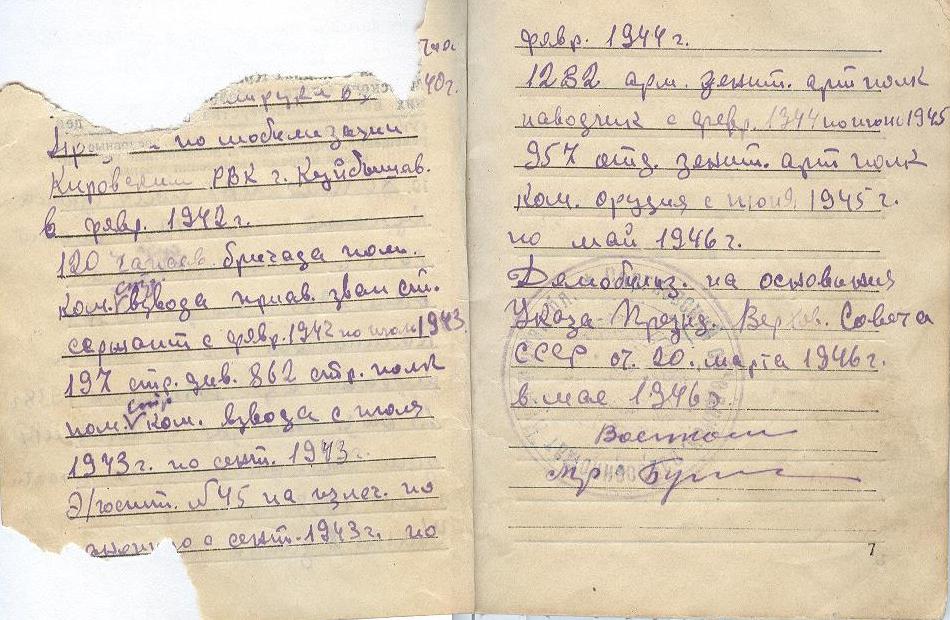 40г.
по мобилизации
Кировским РВК г. Куйбышев.
в февр. 1942 г.
120 бригада пом.
стр.
ком. взвода присв. зван ст.
сержант с февр. 1942 по июль 1943
197 стр. див. 862 стр. полк
стр
пом. ком. взвода с июля
1943 г. по сент. 1943 г.
Э/госпит. №45 на излеч. по
с сент. 1943 г. по
февр. 1944 г.
1282 арм. зенит. арт полк
наводчик с февр. 1944 по июнь 1945
957 отд. зенит. арт полк
ком. орудия с июня 1945 г.
по май 1946 г.
Демобилиз. на основания
Указа Презид. Верхов. Совета
СССР от 20. марта 1946 г.
в мае 1946
7